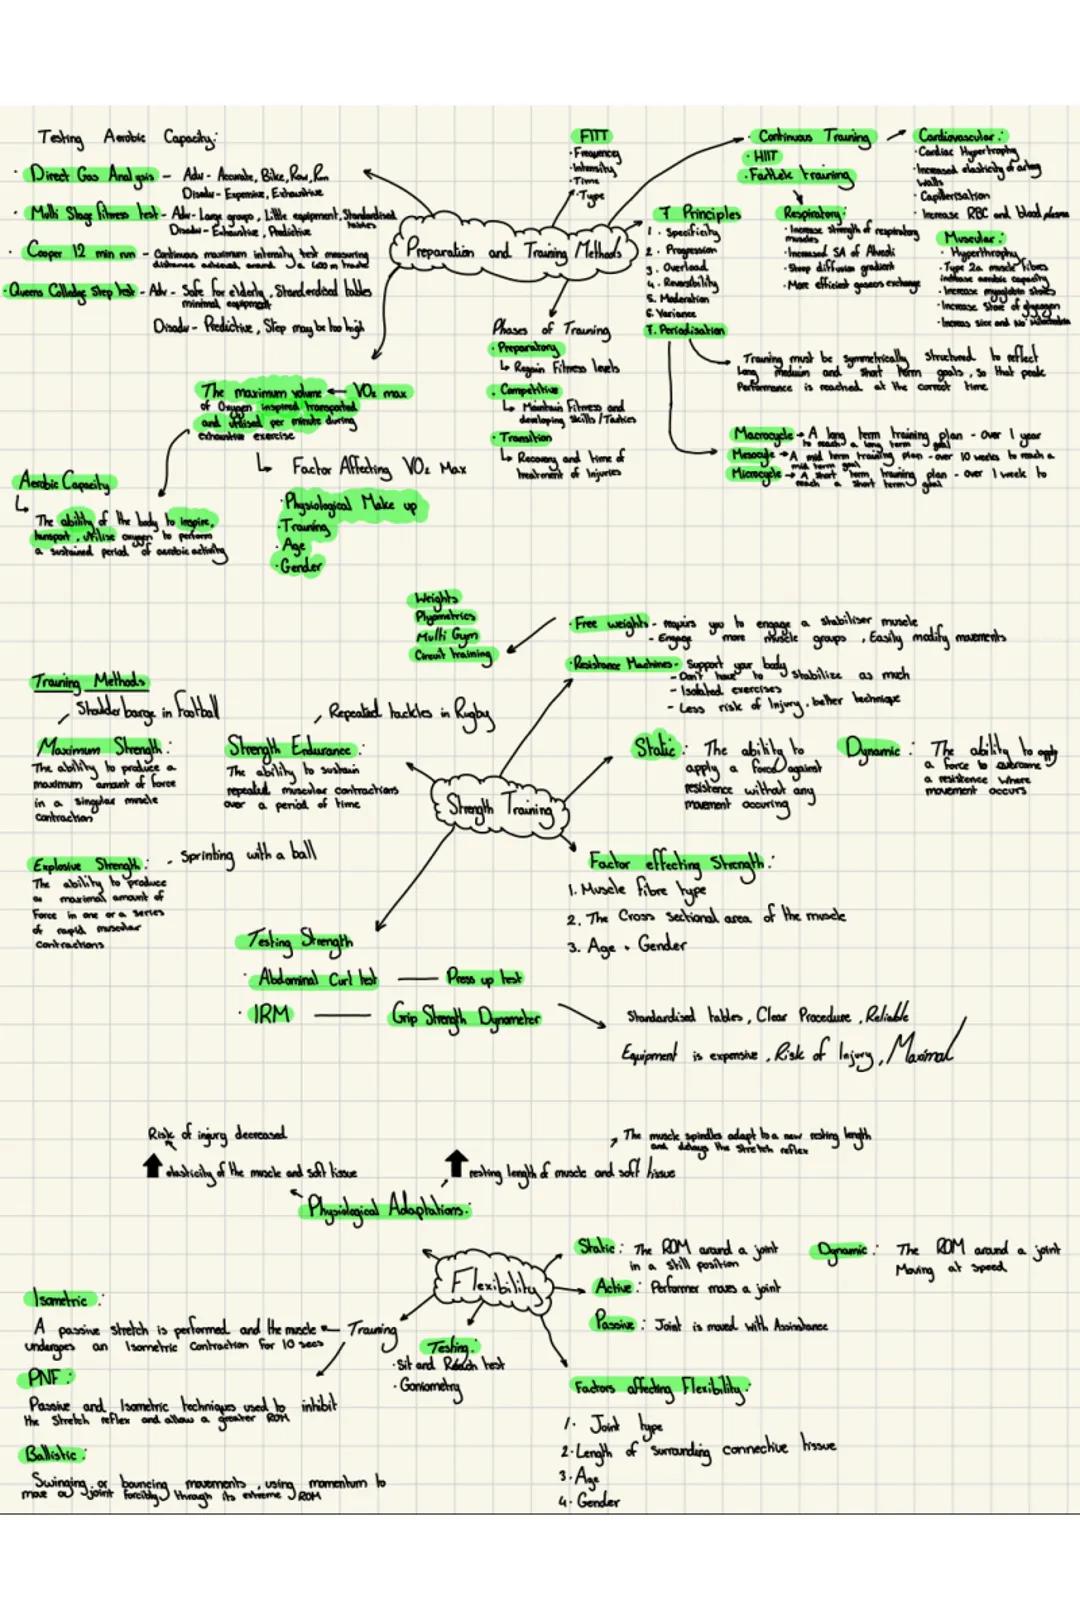 Testing Aerobic Capacity:
· Direct Gas Analysis - Adv - Accurate, Bike, Row, Run
Disadv - Expensive, Exhaustive
· Multi Stage fitness test - Adv - Large groups, Little equipment, Standardised tables
Disadv - Exhaustive, Predictive
· Cooper 12 min run - Continuous maximum intensity test measuring
distance achieved around a 400m track
· Queens Colledge Step test - Adv - Safe for elderly, Standerdised tables
minimal equipment
Disadv - Predictive, Step may be too high
Preparation and Training Methods
FITT
· Frequency
· Intensity
· Time
· Type
7 Principles
1. Specificity
2. Progression
3. Overload
4. Reversibility
5. Moderation
6. Variance
7. Periodisation
· Continuous Training
· HIIT
· Fartlek training
Cardiovascular:
· Cardiac Hypertrophy
· Increased elasticity of artery
walls
· Capillerisation
· Increase RBC and blood plasma
Respiratory:
· Increase strength of respiratory
muscles
· Increased SA of Alveoli
· Steep diffusion gradient
· More efficient gaseous exchange
Muscular:
· Hyperthrophy
· Type 2a muscle fibres
increase aerobic capacity
· Increase myoglobin stores
· Increase Store of glycogen
· Increas size and No mitochondria
Training must be symmetrically structured to reflect
long medium and short term goals, so that peak
Performance is reached at the correct time
Macrocycle → A long term training plan - Over 1 year
to reach a long term goal
Mesocycle → A mid term training plan - over 10 weeks to reach a
mid term goal
Microcycle → A short term training plan - over 1 week to
reach a short term goal
Phases of Training
· Preparatory
↳ Regain Fitness levels
· Competitive
↳ Maintain Fitness and
developing Skills / Tactics
· Transition
↳ Recovery and time of
treatment of Injuries
The maximum volume ← VO2 max
of Oxygen inspired transported
and utilised per minute during
exhaustive exercise
↳ Factor Affecting VO2 Max
· Physiological Make up
· Training
· Age
· Gender
Aerobic Capacity
↳ The ability of the body to inspire,
transport, utilise oxygen to perform
a sustained period of aerobic activity
Weights
Plyometrics
Multi Gym
Circuit training
· Free weights - requirs you to engage a stabiliser muscle
- Engage more muscle groups, Easily modify movements
· Resistance Machines - Support your body
- Don't have to stabilize as much
- Isolated exercises
- Less risk of Injury, better technique
Training Methods
Shoulder barge in Football
Repeated tackles in Rugby
Maximum Strength:
The ability to produce a
maximum amount of force
in a singular muscle
contraction
Strength Endurance:
The ability to sustain
repeated muscular contractions
over a period of time
Strength Training
Static: The ability to
apply a force against
resistence without any
movement occuring
Dynamic: The ability to apply
a force to overcome
a resistence where
movement occurs
Explosive Strength: - Sprinting with a ball
The ability to produce
a maximal amount of
Force in one or a series
of rapid muscular
contractions
Factor effecting Strength:
1. Muscle fibre type
2. The Cross sectional area of the muscle
3. Age · Gender
Testing Strength
· Abdominal Curl test — Press up test
· IRM — Grip Strength Dynamometer
Standardised tables, Clear Procedure, Reliable
Equipment is expensive, Risk of Injury, Maximal
Risk of injury decreased
⬆ elasticity of the muscle and soft tissue
⬆ resting length of muscle and soft tissue
The muscle spindles adapt to a new resting length
and delays the stretch reflex
Physiological Adaptations:
Flexibility
Static: The ROM around a joint
in a still position
Dynamic: The ROM around a joint
Moving at speed
Active: Performer moves a joint
Passive: Joint is moved with Assisstance
Isometric:
A passive stretch is performed and the muscle ← Training
undergoes an Isometric Contraction for 10 secs
PNF:
Passive and Isometric techniques used to inhibit
the Stretch reflex and allow a greater ROM
Ballistic:
Swinging or bouncing movements, using momentum to
move a joint forcibly through its extreme ROM
Testing:
· Sit and Reach test
· Goniometry
Factors affecting Flexibility:
1. Joint type
2. Length of surrounding connective tissue
3. Age
4. Gender